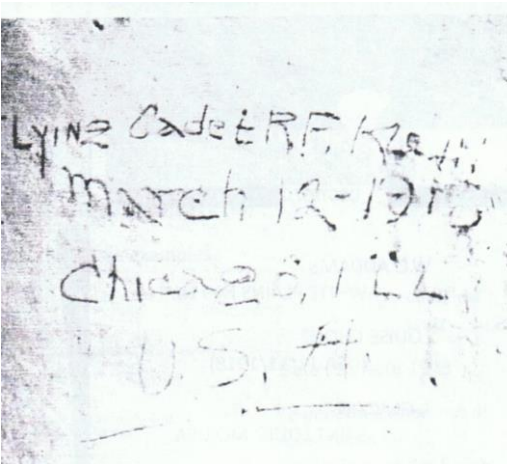 Lying Cadet R.F.
March 12-1918
Chicago, ILL.
U.S.A.